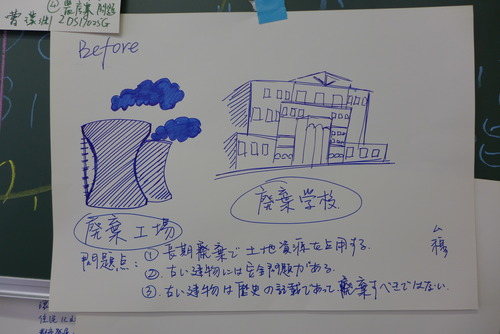 ④ 農廃棄問題
ZDS1902SG
Before
廃棄工場
廃棄学校
問題点：① 長期廃棄で土地資源を占用する.
② 古い建物には安全問題がある.
③ 古い建物は歴史の記載であって廃棄すべきではない.